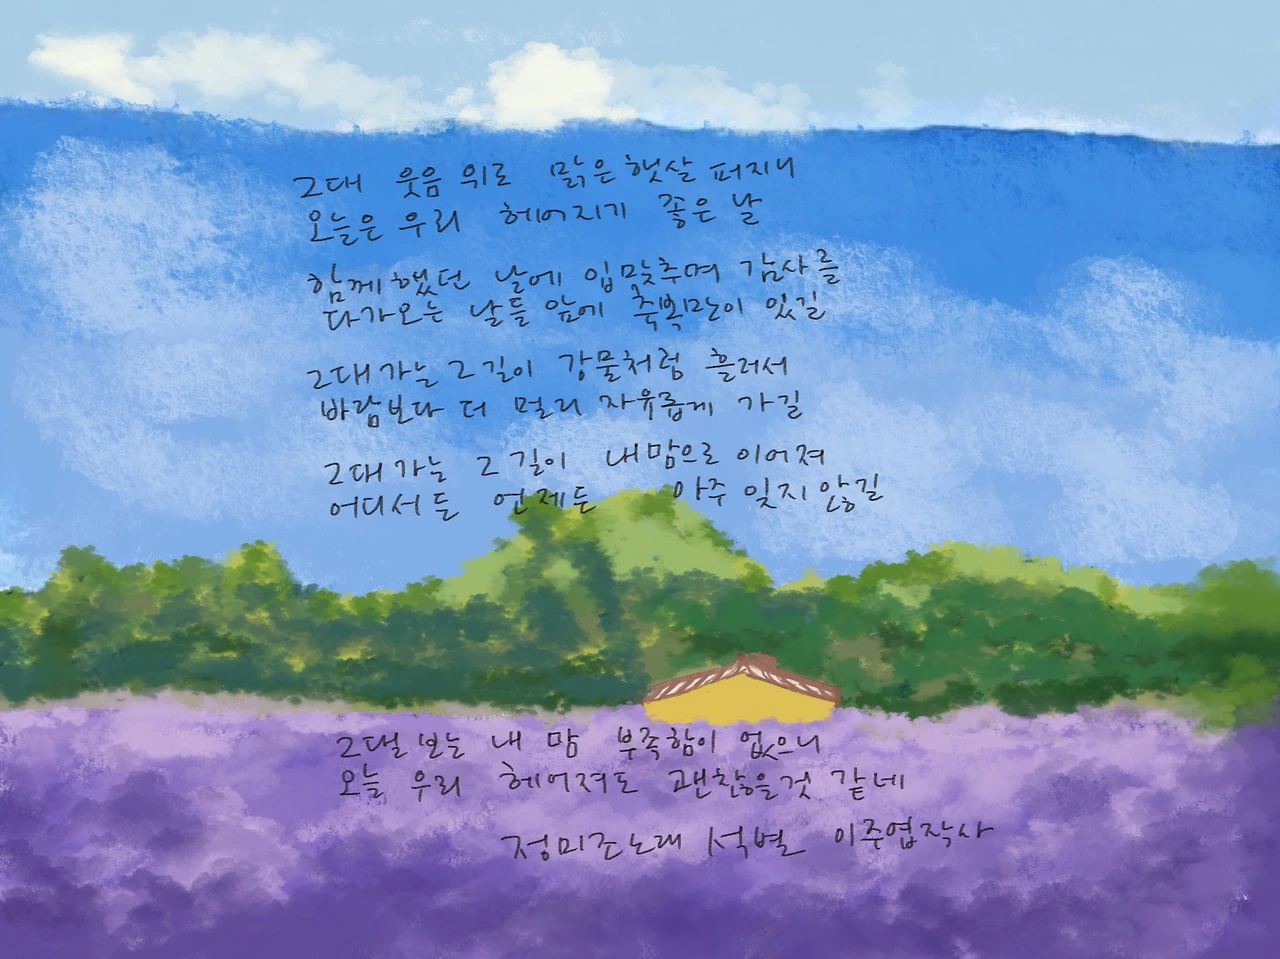 그대 웃음 위로 맑은 햇살 퍼지니
오늘은 우리 헤어지기 좋은 날
함께했던 날에 입맞추며 감사를
다가오는 날들 앞에 축복만이 있길
그대 가는 그 길이 강물처럼 흘러서
바람보다 더 멀리 자유롭게 가길
그대 가는 그 길이 내맘으로 이어져
어디서든 언제든 아주 잊지 않길
그댈 보는 내 맘 부족함이 없으니
오늘 우리 헤어져도 괜찮을것 같네
정미조노래 석별 이주엽작사